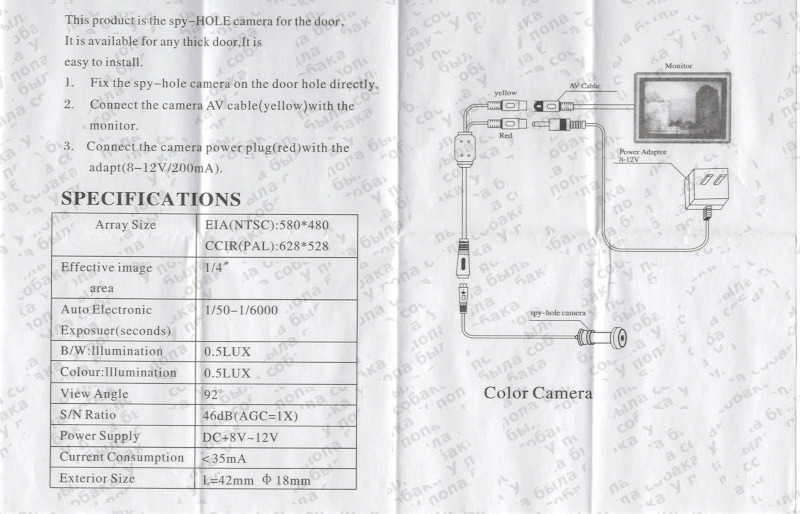 This product is the spy-HOLE camera for the door,
It is available for any thick door,It is
easy to install.
1. Fix the spy-hole camera on the door hole directly,
2. Connect the camera AV cable(yellow)with the
monitor.
3. Connect the camera power plug(red)with the
adapt(8-12V/200mA).
SPECIFICATIONS
Array Size EIA(NTSC):580*480
CCIR(PAL):628*528
Effective image 1/4"
area
Auto Electronic 1/50-1/6000
Exposuer(seconds)
B/W:Illumination 0.5LUX
Colour:Illumination 0.5LUX
View Angle 92°
S/N Ratio 46dB(AGC=1X)
Power Supply DC+8V-12V
Current Consumption <35mA
Exterior Size L=42mm Φ 18mm
Monitor
yellow
AV Cable
Red
Power Adaptor
8-12V
spy-hole camera
Color Camera